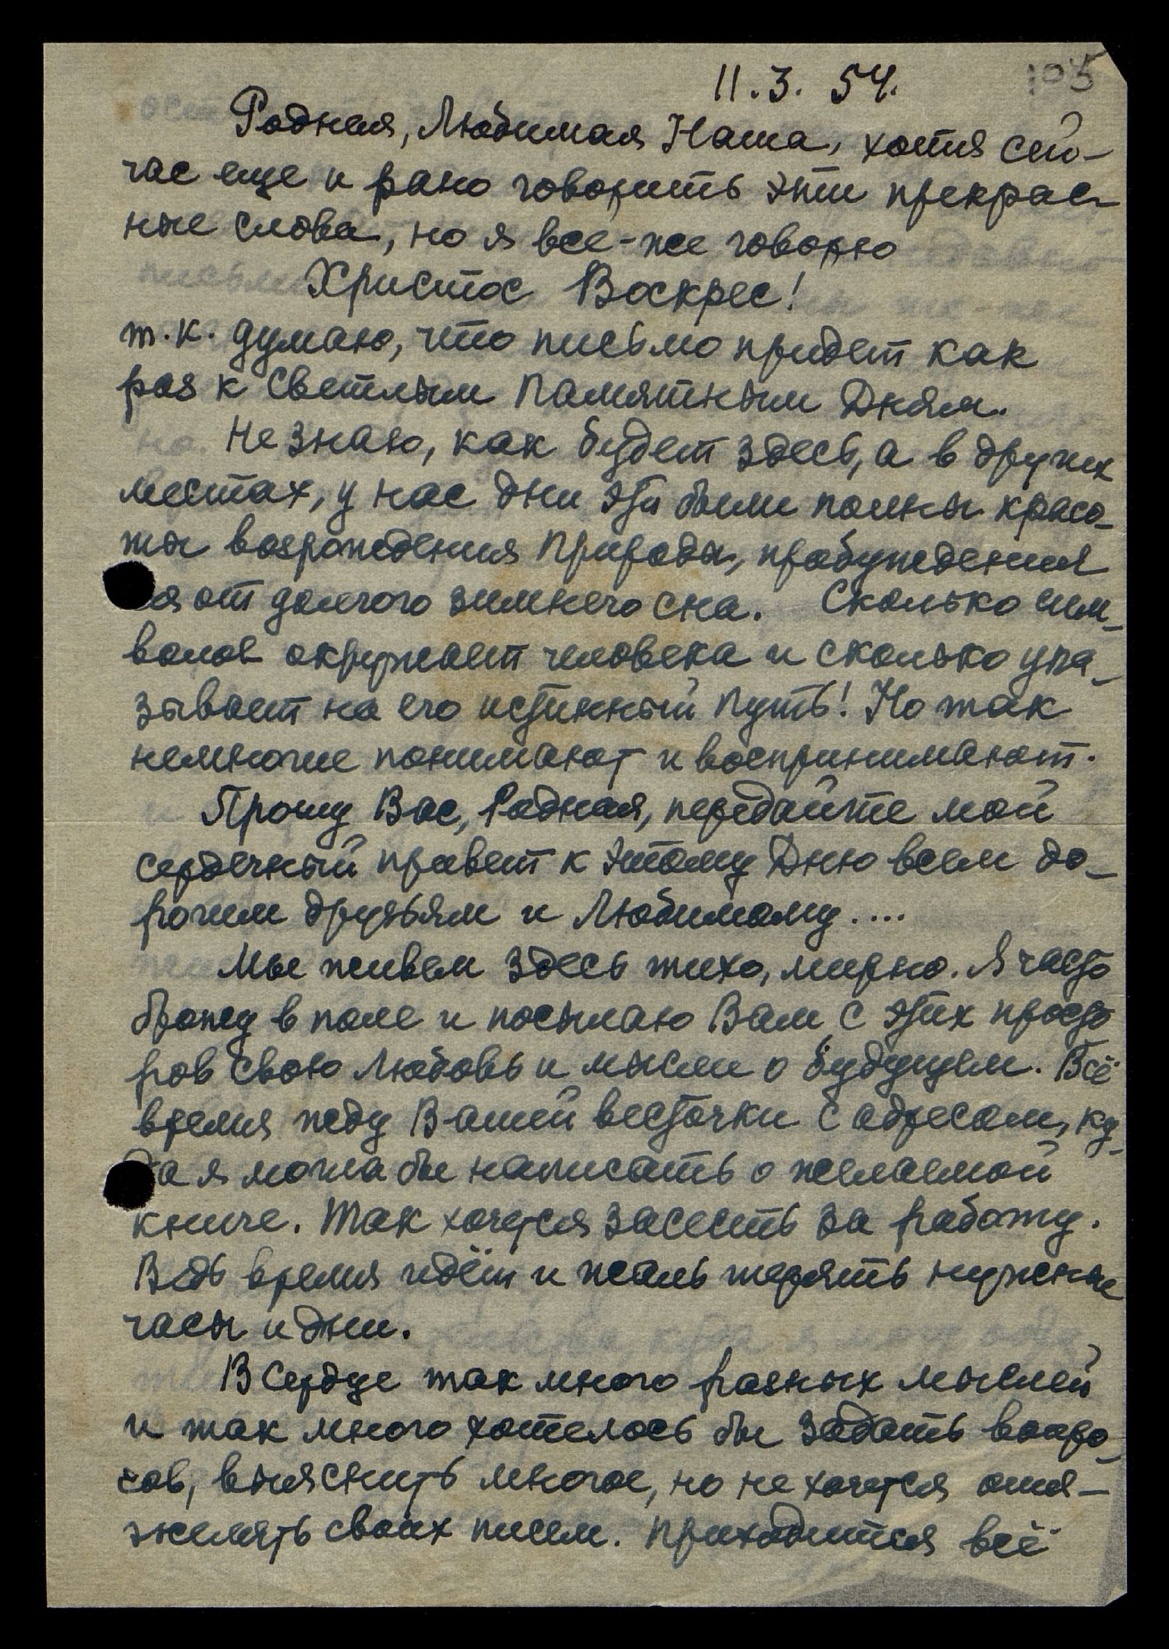 11.3.54.
105
Родная, Любимая Наша, хотя сей-
час еще и рано говорить эти прекрас-
ные слова, но я все-же говорю
Христос Воскрес!
т.к. думаю, что письмо придет как
раз к Светлым Памятным Дням.
Не знаю, как будет здесь, а в других
местах, у нас дни эти были полны красо-
ты возрождения Природы, пробуждения
от долгого зимнего сна. Сколько сим-
волов окружает человека и сколько ука-
зывает на его истинный Путь! Но так
немногие понимают и воспринимают.
Прошу Вас, Родная, передайте мой
сердечный привет к этому Дню всем до-
рогим друзьям и Любимому....
Мы живем здесь тихо, мирно. Я часто
брожу в поле и посылаю Вам с этих просто
ров свою Любовь и мысли о будущем. Всё
время жду Вашей весточки с адресом, ку-
да я могла бы написать о желаемой
книге. Так хочется засесть за работу.
Ведь время идёт и жаль терять нужные
часы и дни.
В Сердце так много разных мыслей
и так много хотелось бы задать вопро-
сов, выяснить многое, но не хочется отя-
желять своих писем. Приходится всё